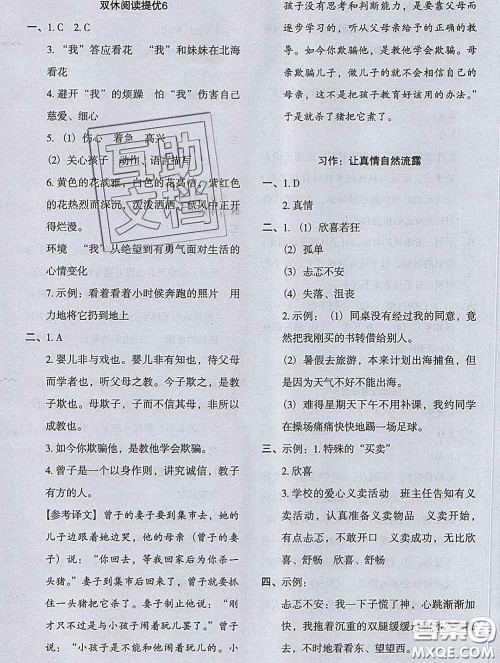 双休阅读提优6
一、1. C　2. C
3. “我”答应看花　“我”和妹妹在北海
看花
4. 避开“我”的烦躁　怕“我”伤害自己
慈爱、细心
5. (1) 伤心　着急　高兴
(2) 关心孩子　动作、语言描写
6. 黄色的花淡雅，白色的花高洁，紫红色
的花热烈而深沉，泼泼洒洒，秋风中正开
得烂漫。
环境　“我”从绝望到有勇气面对生活的
心情变化
7. 示例：看着看着小时候奔跑的照片　用
力地将它扔到地上
二、1. A
2. 婴儿非与戏也。婴儿非有知也，待父母
而学者也，听父母之教。今子欺之，是教
子欺也。母欺子，子而不信其母，非所以
成教也。
3. 如今你欺骗他，是教他学会欺骗。
4. 曾子是一个以身作则，讲究诚信，教子
有方的人。
[参考译文] 曾子的妻子要到集市去，她的
儿子边跟着她边哭，他的母亲（曾子的妻
子）说：“你回去，等我回家后为你杀一
头猪。”妻子到集市后回来了，曾子就要抓
住一头猪把它杀了。他的妻子说：“刚
才只不过是与小孩子闹着玩儿罢了。”曾子
说：“小孩子是不能和他闹着玩的。小
孩子没有思考和判断能力，是要向父母亲
逐步学习的，听从父母亲给予的正确的教
导。如今你欺骗他，是教他学会欺骗。母
亲欺骗儿子，做儿子的就不会相信自己的
母亲，这不是把孩子教育好该用的办法。”
于是就杀了猪把它煮了。
习作：让真情自然流露
一、1. D
2. 真情
二、1. (1) 欣喜若狂
(2) 孤单
(3) 忐忑不安
(4) 失落、沮丧
2. 示例：(1) 同桌没有经过我的同意，竟
然把我刚买的书转借给别人。
(2) 暑假去旅游，本来计划出海捕鱼，但
是因为天气不好不能出海。
(3) 难得星期天下午不用补课，我约同学
在操场痛痛快快地踢一场足球。
三、示例：1. 特殊的“买卖”
2. 欣喜
3. 学校的爱心义卖活动　班主任告知义卖
活动，认真准备义卖物品　义卖开始前，
有点忐忑，不敢开口　义卖成功，无比欣
喜、舒畅　欣喜、舒畅
四、示例：
忐忑不安：我一下子慌了神，心跳渐渐加
快，我拖着沉重的双腿缓缓
去，不时地看看东、望望西
互助
文档
答案圈
MXQE.COM